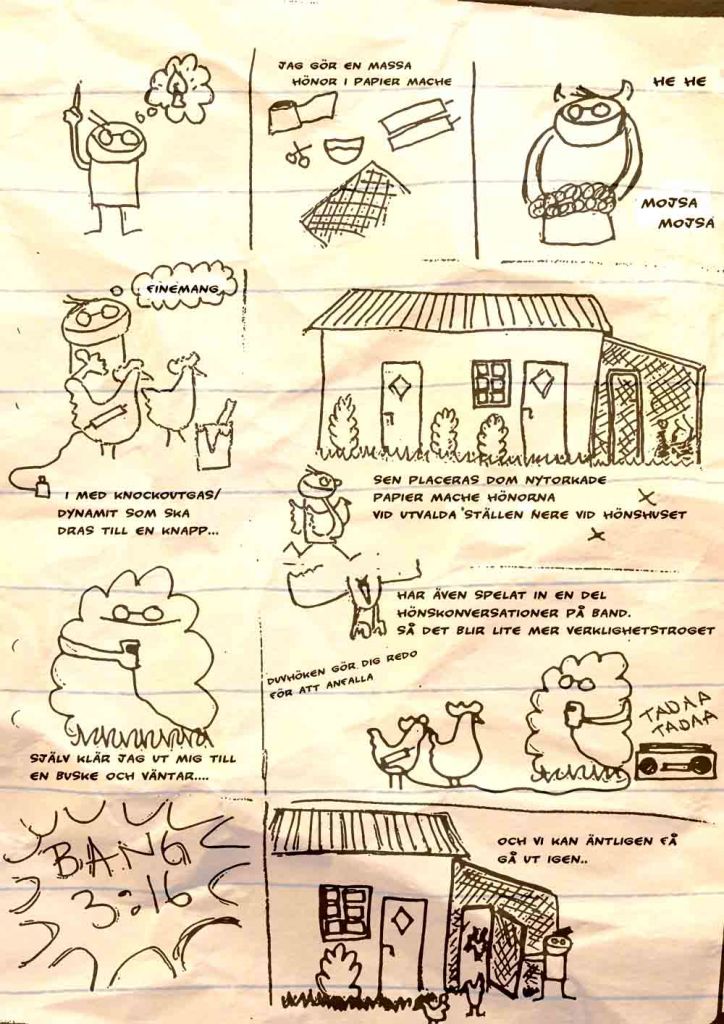 JAG GÖR EN MASSA
HÖNOR I PAPIER MACHE
HE HE
MOJSA
MOJSA
FINEMANG
I MED KNOCKOUTGAS/
DYNAMIT SOM SKA
DRAS TILL EN KNAPP...
SEN PLACERAS DOM NYTORKADE
PAPIER MACHE HÖNORNA
VID UTVALDA STÄLLEN NERE VID HÖNSHUSET
HAR ÄVEN SPELAT IN EN DEL
HÖNSKONVERSATIONER PÅ BAND.
SÅ DET BLIR LITE MER VERKLIGHETSTROGET
SJÄLV KLÄR JAG UT MIG TILL
EN BUSKE OCH VÄNTAR....
DUVHÖKEN GÖR DIG REDO
FÖR ATT ANFALLA
TADAA
TADAA
BANG
3:16
OCH VI KAN ÄNTLIGEN FÅ
GÅ UT IGEN..